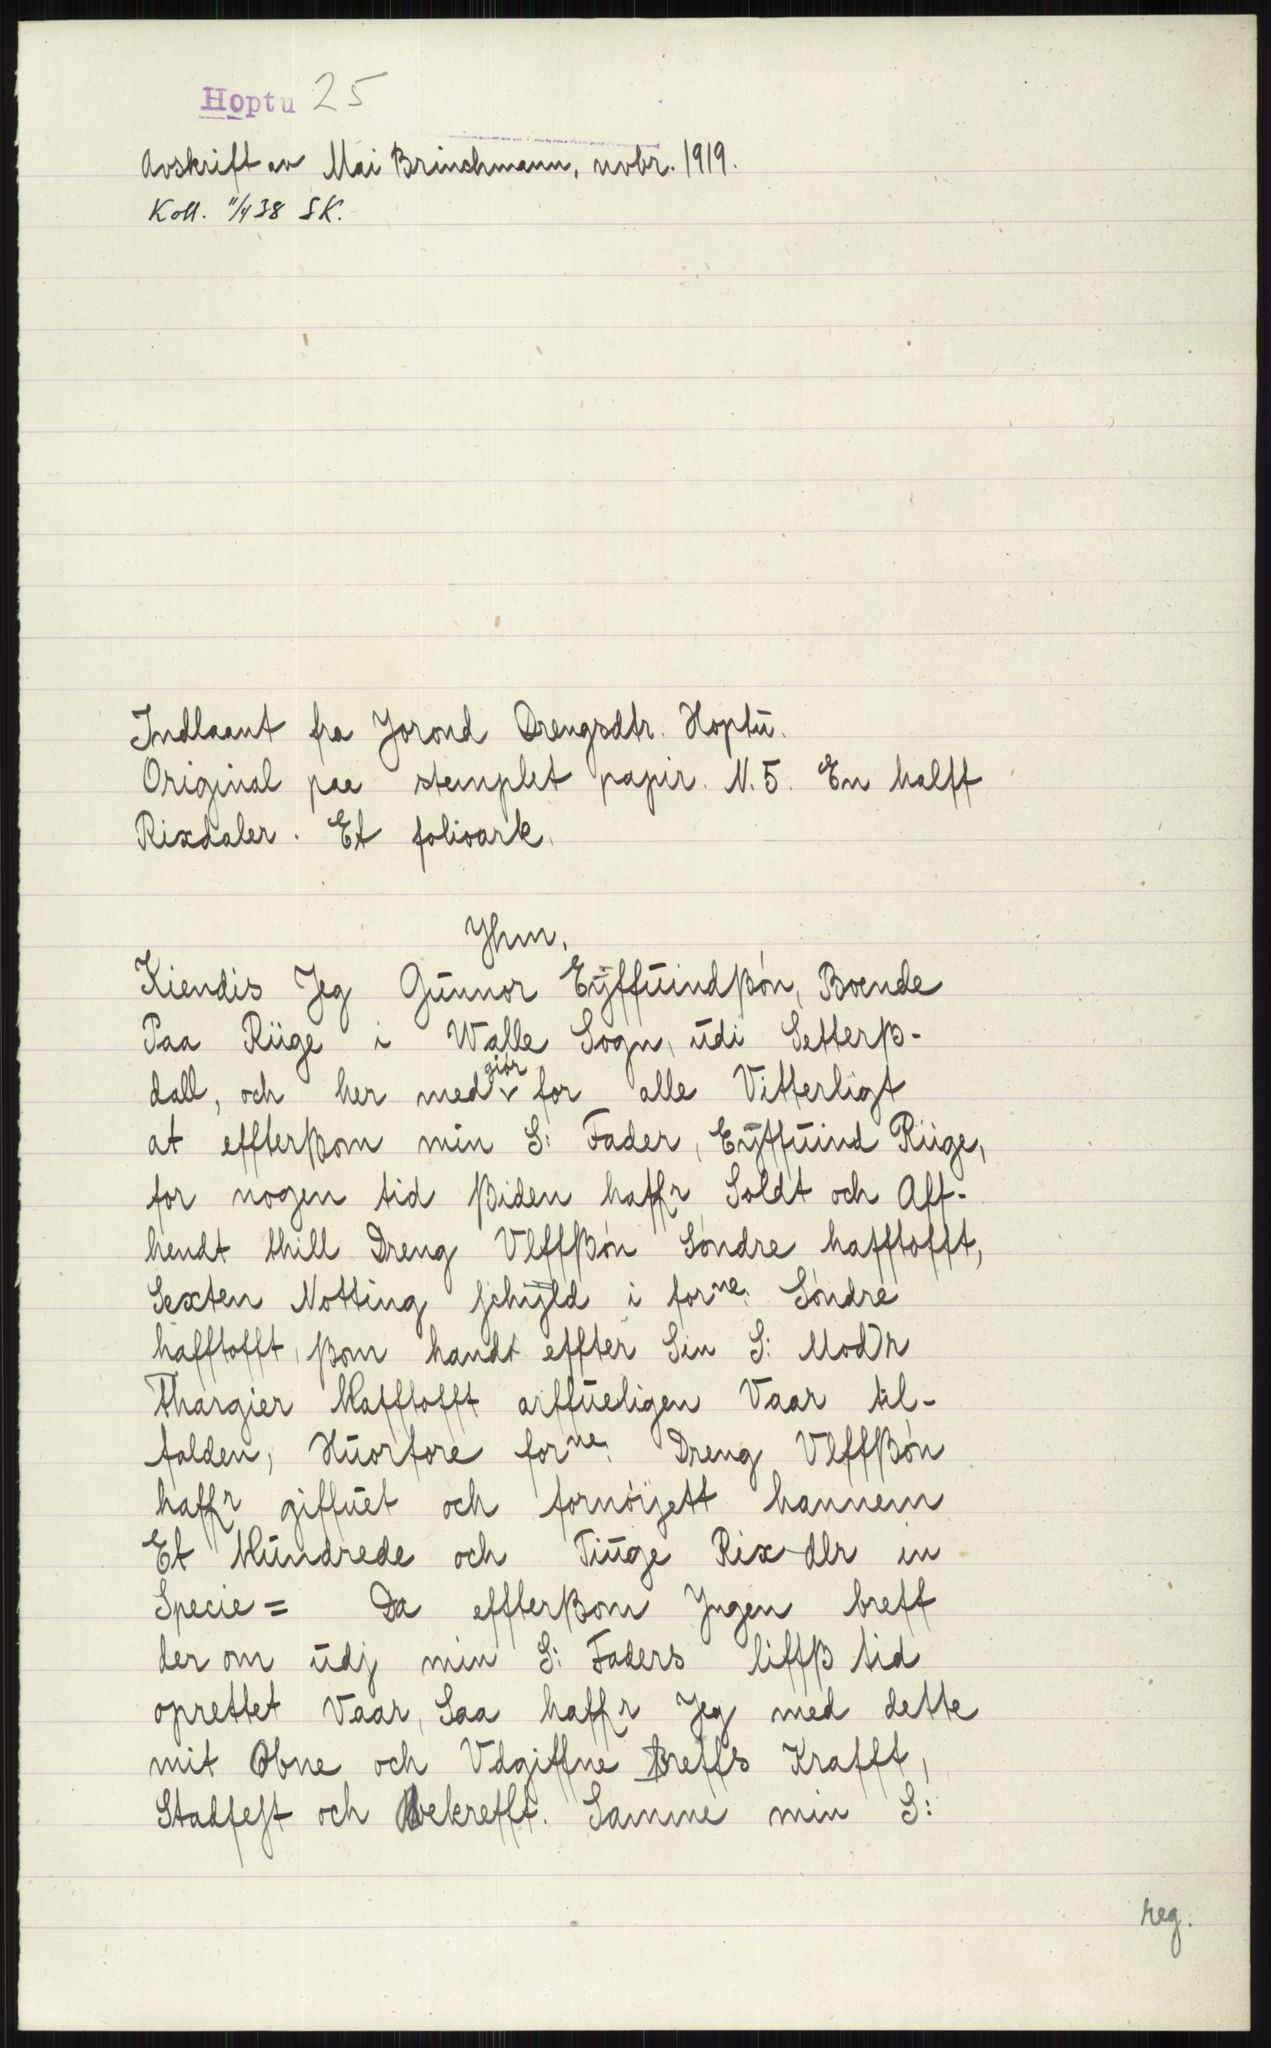 Hoptu 25
Avskrift av Mai Brinchmann, novbr. 1919.
Koll. 11/4 38 SK.
Indlaant fra Jorond Drengsdtr. Hoptu.
Original paa stemplet papir. N. 5. En halff
Rixdaler. Et folioark.
Jhm.
Kiendis Jeg Gunnor Eyffuindßøn, Boende
Paa Riige i Walle Sogn, udi Setterß-
dall, och her med giør for alle Vitterligt
at effterßom min S: Fader, Eyffuind Riige,
for nogen tid ßiden haffr Soldt och Aff-
hendt thill Dreng Vlffßøn Søndre hafftofft,
Sexten Notting schyld i forne: Søndre
hafftofft, ßom handt effter Sin S: Modr
Thargier Hafftofft arffueligen Vaar til-
falden, Huorfore forne: Dreng Vlffßøn
haffr giffuet och fornøyett hannem
Et Hundrede och Tiuge Rixdlr in
Specie = Da effterßom Jngen breff
der om udj min S: Faders liffß tid
oprettet Vaar, Saa haffr Jeg med dette
mit Obne och Vdgiffne Breffs Krafft,
Stadfest och Bekrefft. Samme min S:
reg.